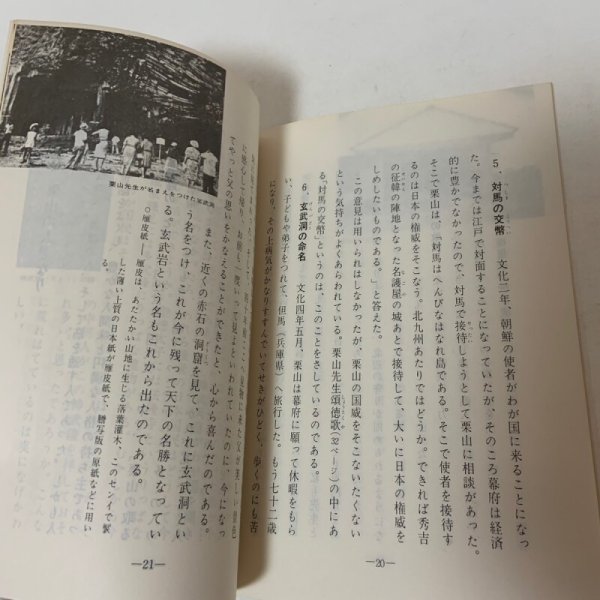 5、対馬の交幣　文化二年、朝鮮の使者がわが国に来ることになっ
た。今までは江戸で対面することになっていたが、そのころ幕府は経済
的に豊かでなかったので、対馬で接待しようとして栗山に相談があった。
そこで栗山は、「対馬はへんぴなはなれ島である。そこで使者を接待す
るのは日本の権威をそこなう。北九州あたりではどうか。できれば秀吉
の征韓の陣地となった名護屋の城あとで接待して、大いに日本の権威を
しめしたいものである。」と答えた。
この意見は用いられはしなかったが、栗山の国威をそこないたくない
という気持ちがよくあらわれている。栗山先生頌徳歌(32ページ)の中にあ
る「対馬の交幣」というのは、このことをさしているのである。
6、玄武洞の命名　文化四年五月、栗山は幕府に願って休暇をもら
い、子どもや弟子をつれて、但馬(兵庫県)へ旅行した。もう七十二歳
になり、その上病気がかなりすすんでいてせきがひどく、歩くのにも苦
—20—
栗山先生が名まえをつけた玄武洞
に感心して帰り、お前も一度行って見よといわれていたのに、今になっ
てやっと父の思いをかなえることができたと、心から喜んだのである。
また、近くの赤石の洞窟を見て、これに玄武洞とい
う名をつけ、これが今に残って天下の名勝となってい
る。玄武岩という名もこれから出たのである。
○雁皮紙―雁皮は、あたたかい山地に生じる落葉灌木、このセンイで製
した薄い上質の日本紙が雁皮紙で、謄写版の原紙などに用い
る。
—21—